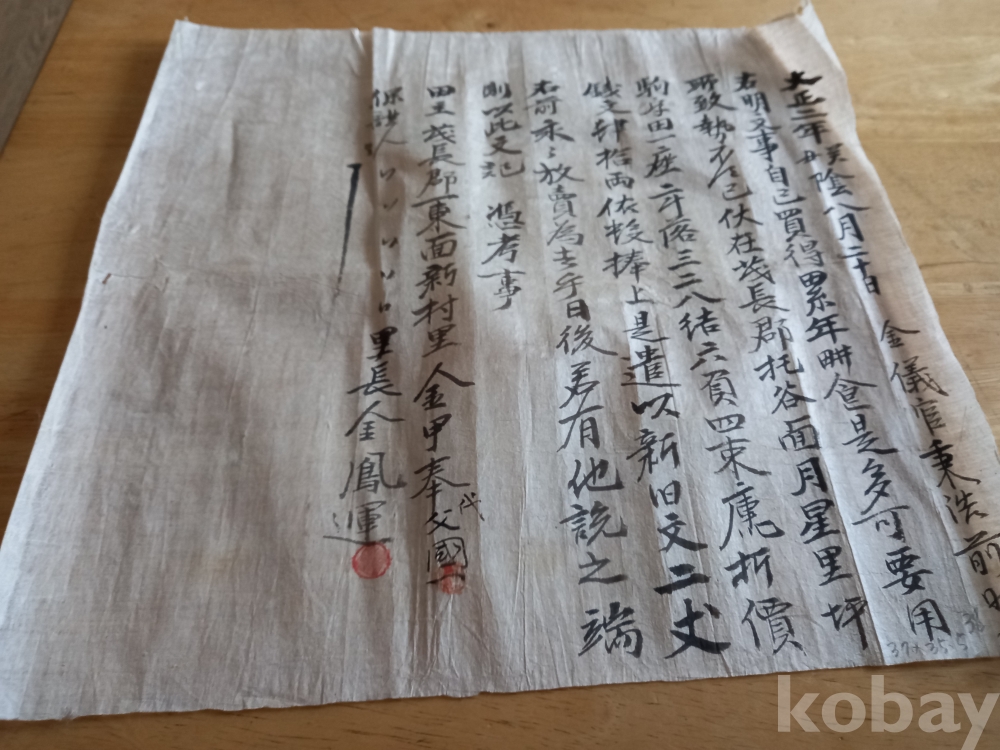 大正二年 陰八月二十日 金儀官秉浩前
右明文事自己買得累年畊食是多可要用
所致勢不已伏在茂長郡托谷面月星里坪
駒字田一座二斗落三 八結六負四束庫折價
錢文 拾兩依 捧上是遣以新旧文二丈
右前永々放賣為去乎日後若有他說之端
則以此文記 憑考事
田主茂長郡東面新村里 金甲奉 代父國
保證人 〃 〃 〃 〃 里長金鳳運
37×35.5
kobay